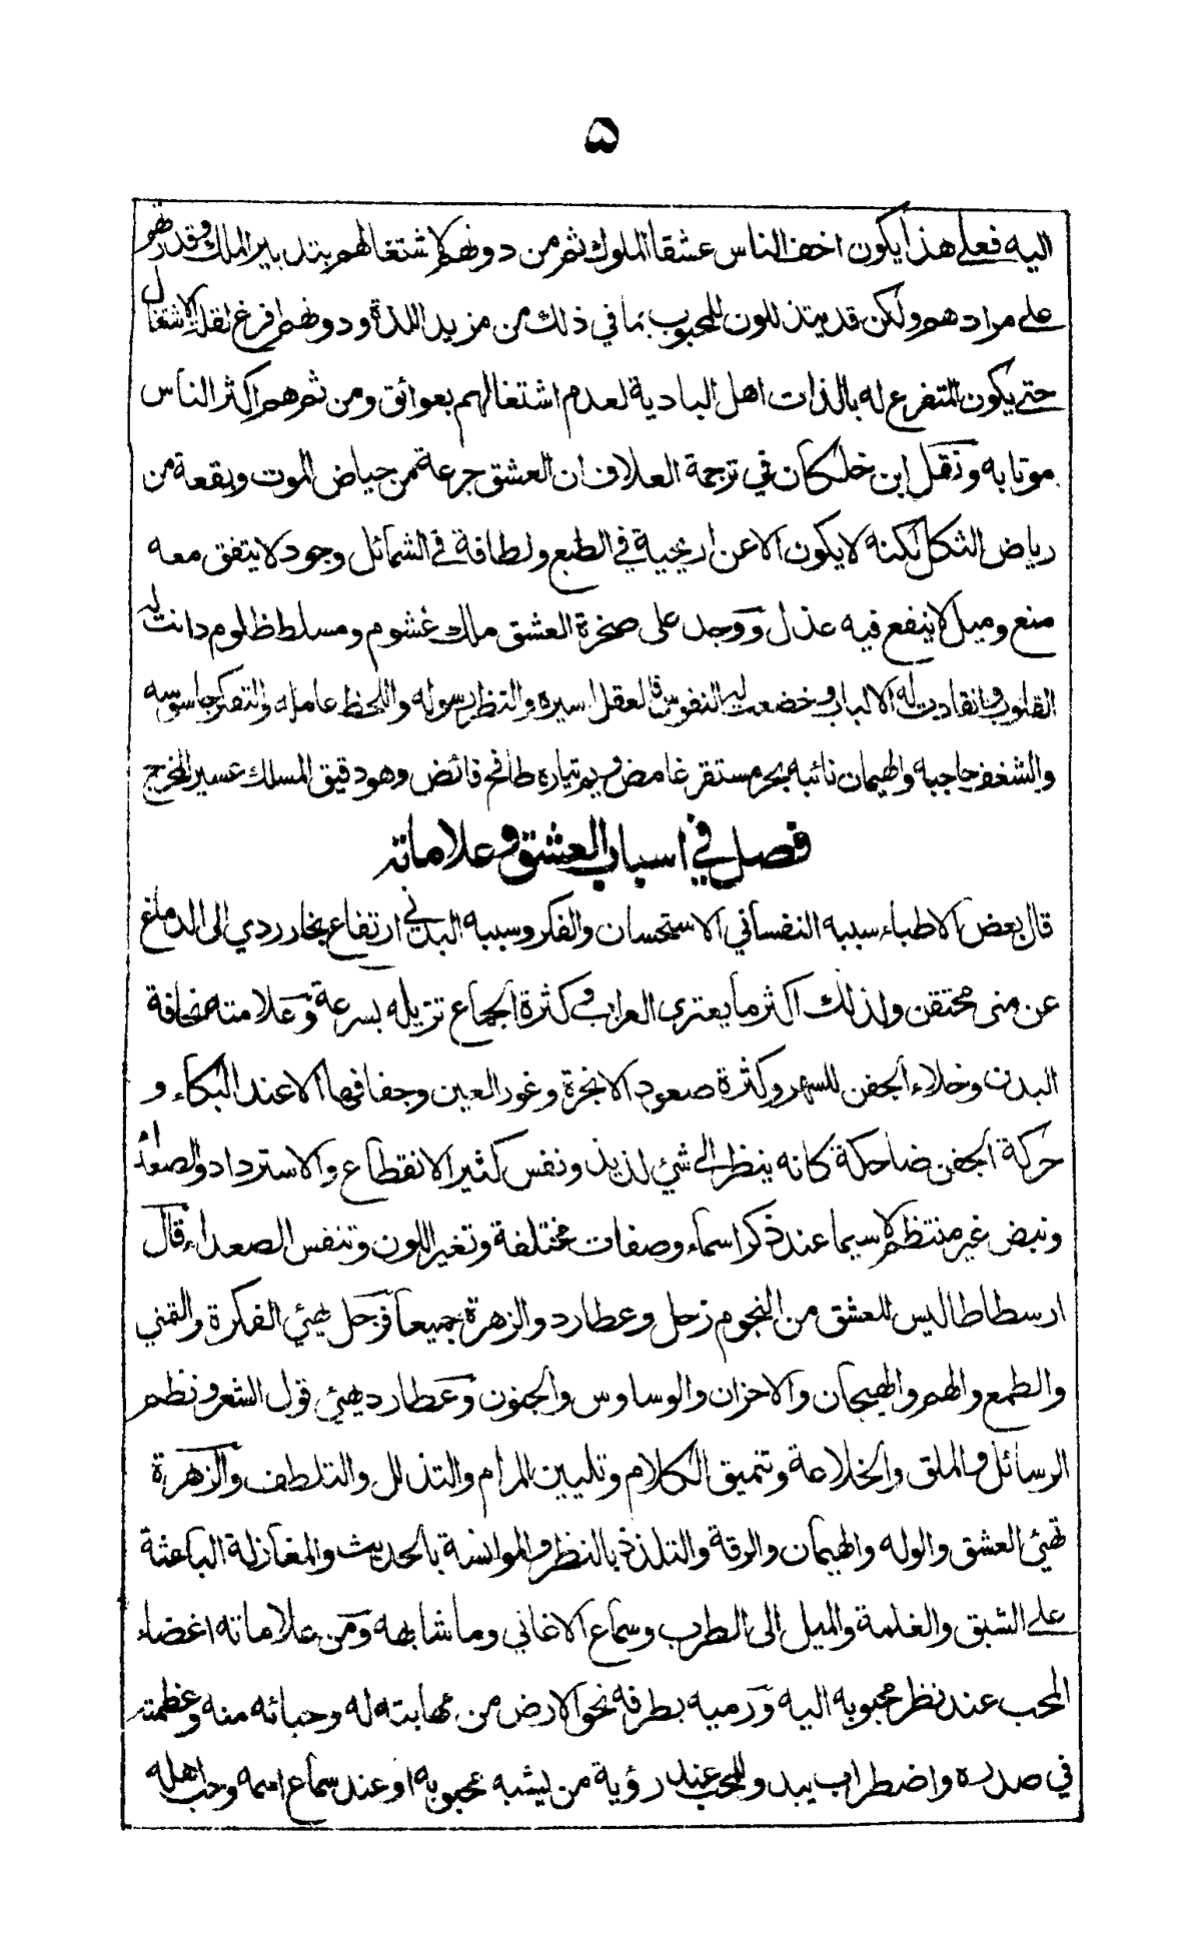 ۵
اليه فعلى هذا يكون اخف الناس عشقا الملوك ثم من دونهم لاشتغالهم بتدبير الملك وقدرتهم
على مرادهم ولكن قد يتذللون للمحبوب بما في ذلك من مزيد اللذة ودونهم افرغ لقلة الاشتغال
حتى يكون المتفرغ له بالذات اهل البادية لعدم اشتغالهم بعوائق ومن ثم هم اكثر الناس
موتا به ونقل ابن خلكان في ترجمة العلاف ان العشق جرعة من حياض الموت وبقعة من
رياض الثكل لكنه لا يكون الا عن اريحية في الطبع ولطافة في الشمائل وجود لا يتفق معه
منع وميل لا ينفع فيه عذل ووجد على صخرة العشق ملك غشوم ومسلط ظلوم دانت له
القلوب وانقادت له الالباب وخضعت له النفوس فالعقل اسيره والنظر رسوله واللحظ عامله والتفكر جاسوسه
والشغف حاجبه والهيمان نائبه بحر مستقر غامض ويم تياره طافح فائض وهو دقيق المسلك عسير المخرج
فصل في اسباب العشق وعلاماته
قال بعض الاطباء سببه النفساني الاستحسان والفكر وسببه البدني ارتفاع بخار ردي الى الدماغ
عن منى محتقن ولذلك اكثر ما يعترى العزاب وكثرة الجماع تزيله بسرعة وعلامته نحافة
البدن وخلاء الجفن للسهر وكثرة صعود الابخرة وغور العين وجفافها الا عند البكاء و
حركة الجفن ضاحكة كانه ينظر الى شئ لذيذ ونفس كثير الانقطاع والاسترداد والصعداء
ونبض غير منتظم لاسيما عند ذكر اسماء وصفات مختلفة وتغير اللون وتنفس الصعداء قال
ارسطاطاليس للعشق من النجوم زحل وعطارد والزهرة جميعا فزحل يهيئ الفكرة والتمني
والطمع والهم والهيجان والاحزان والوساوس والجنون وعطارد يهيئ قول الشعر ونظم
الرسائل والملق والخلاعة وتنميق الكلام وتليين المرام والتذلل والتلطف والزهرة
تهيئ العشق والوله والهيمان والرقة والتلذذ بالنظر والموانسة بالحديث والمغازلة الباعثة
على الشبق والغلمة والميل الى الطرب وسماع الاغاني وما شابهه ومن علاماته اغضاء
المحب عند نظر محبوبه اليه ورميه بطرفه نحو الارض من مهابته له وحيائه منه وعظمته
في صدره واضطراب يبدو للمحب عند رؤية من يشبه محبوبه او عند سماع اسمه وحب اهله